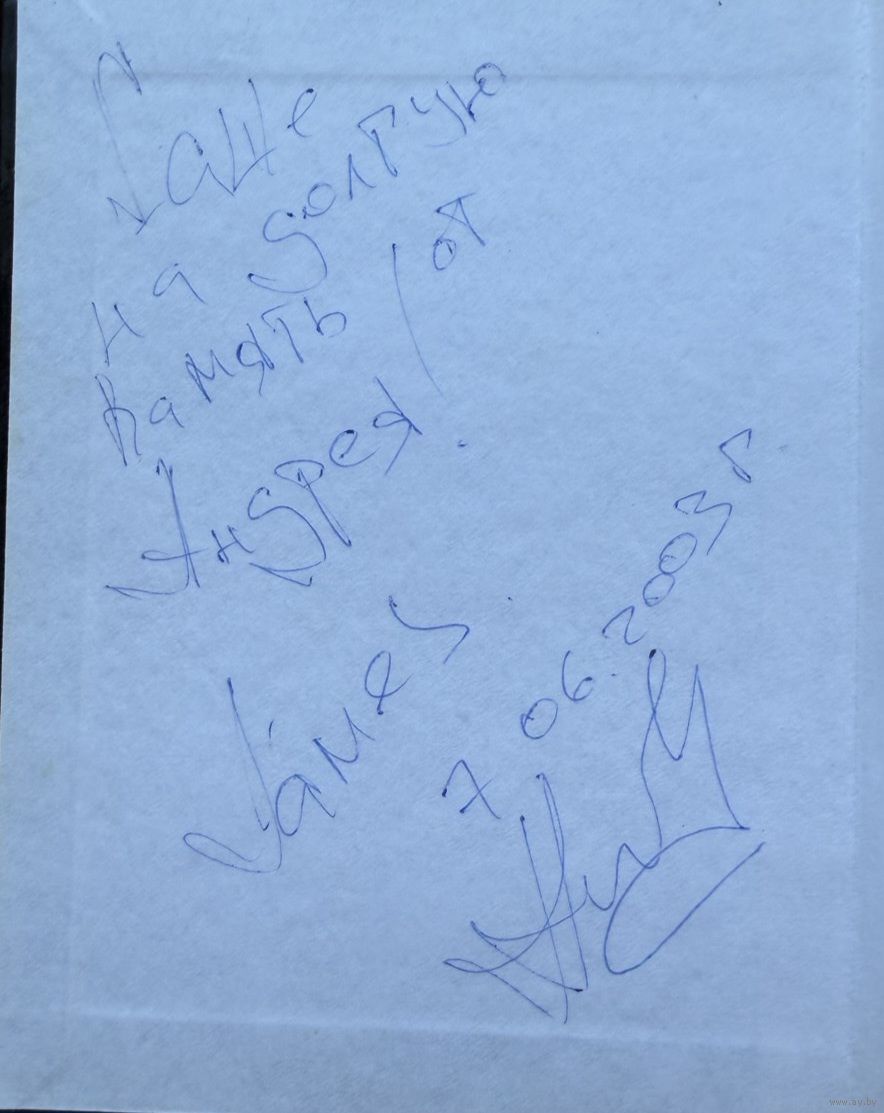 Саше
на долгую
память / от
Андрея!
James
7 06.2003 г.
www.ay.by